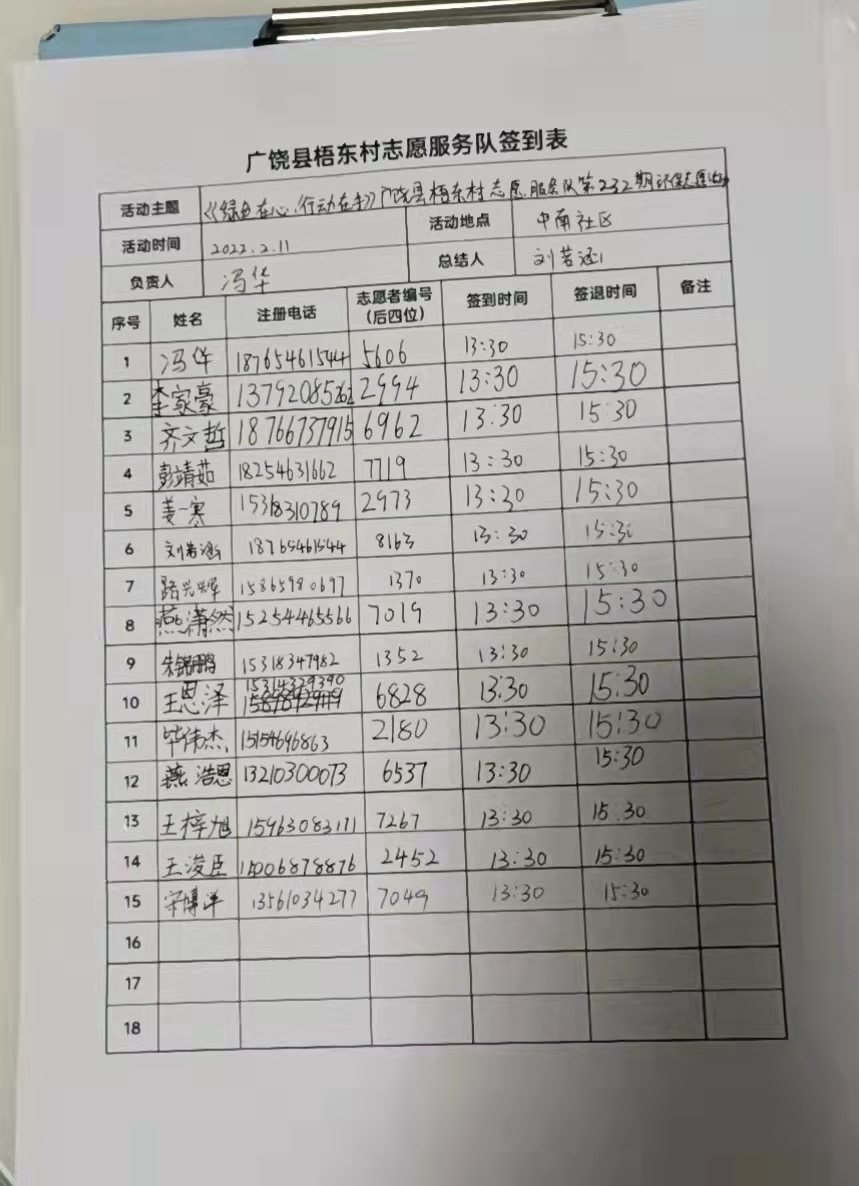 广饶县梧东村志愿服务队签到表
活动主题 《绿色在心,行动在手》广饶县梧东村志愿服务队第232期环保志愿活动
活动时间 2022.2.11 活动地点 中南社区
负责人 冯华 总结人 刘若涵
序号 姓名 注册电话 志愿者编号(后四位) 签到时间 签退时间 备注
1 冯华 18765461544 5606 13:30 15:30
2 李家豪 13792085262 2994 13:30 15:30
3 齐文哲 18766737915 6962 13:30 15:30
4 彭靖茹 18254631662 7719 13:30 15:30
5 姜一寒 15318310789 2973 13:30 15:30
6 刘若涵 18765461544 8163 13:30 15:30
7 路兴辉 15865980697 1370 13:30 15:30
8 燕潇然 15254465566 7019 13:30 15:30
9 朱锦鹏 15318347982 1352 13:30 15:30
10 王恩泽 15314329390 6828 13:30 15:30
11 毕伟杰 15154696863 2180 13:30 15:30
12 燕浩恩 13210300073 6537 13:30 15:30
13 王梓旭 15963083171 7267 13:30 15:30
14 王浚臣 15006878876 2452 13:30 15:30
15 宋博洋 13561034277 7049 13:30 15:30
16
17
18